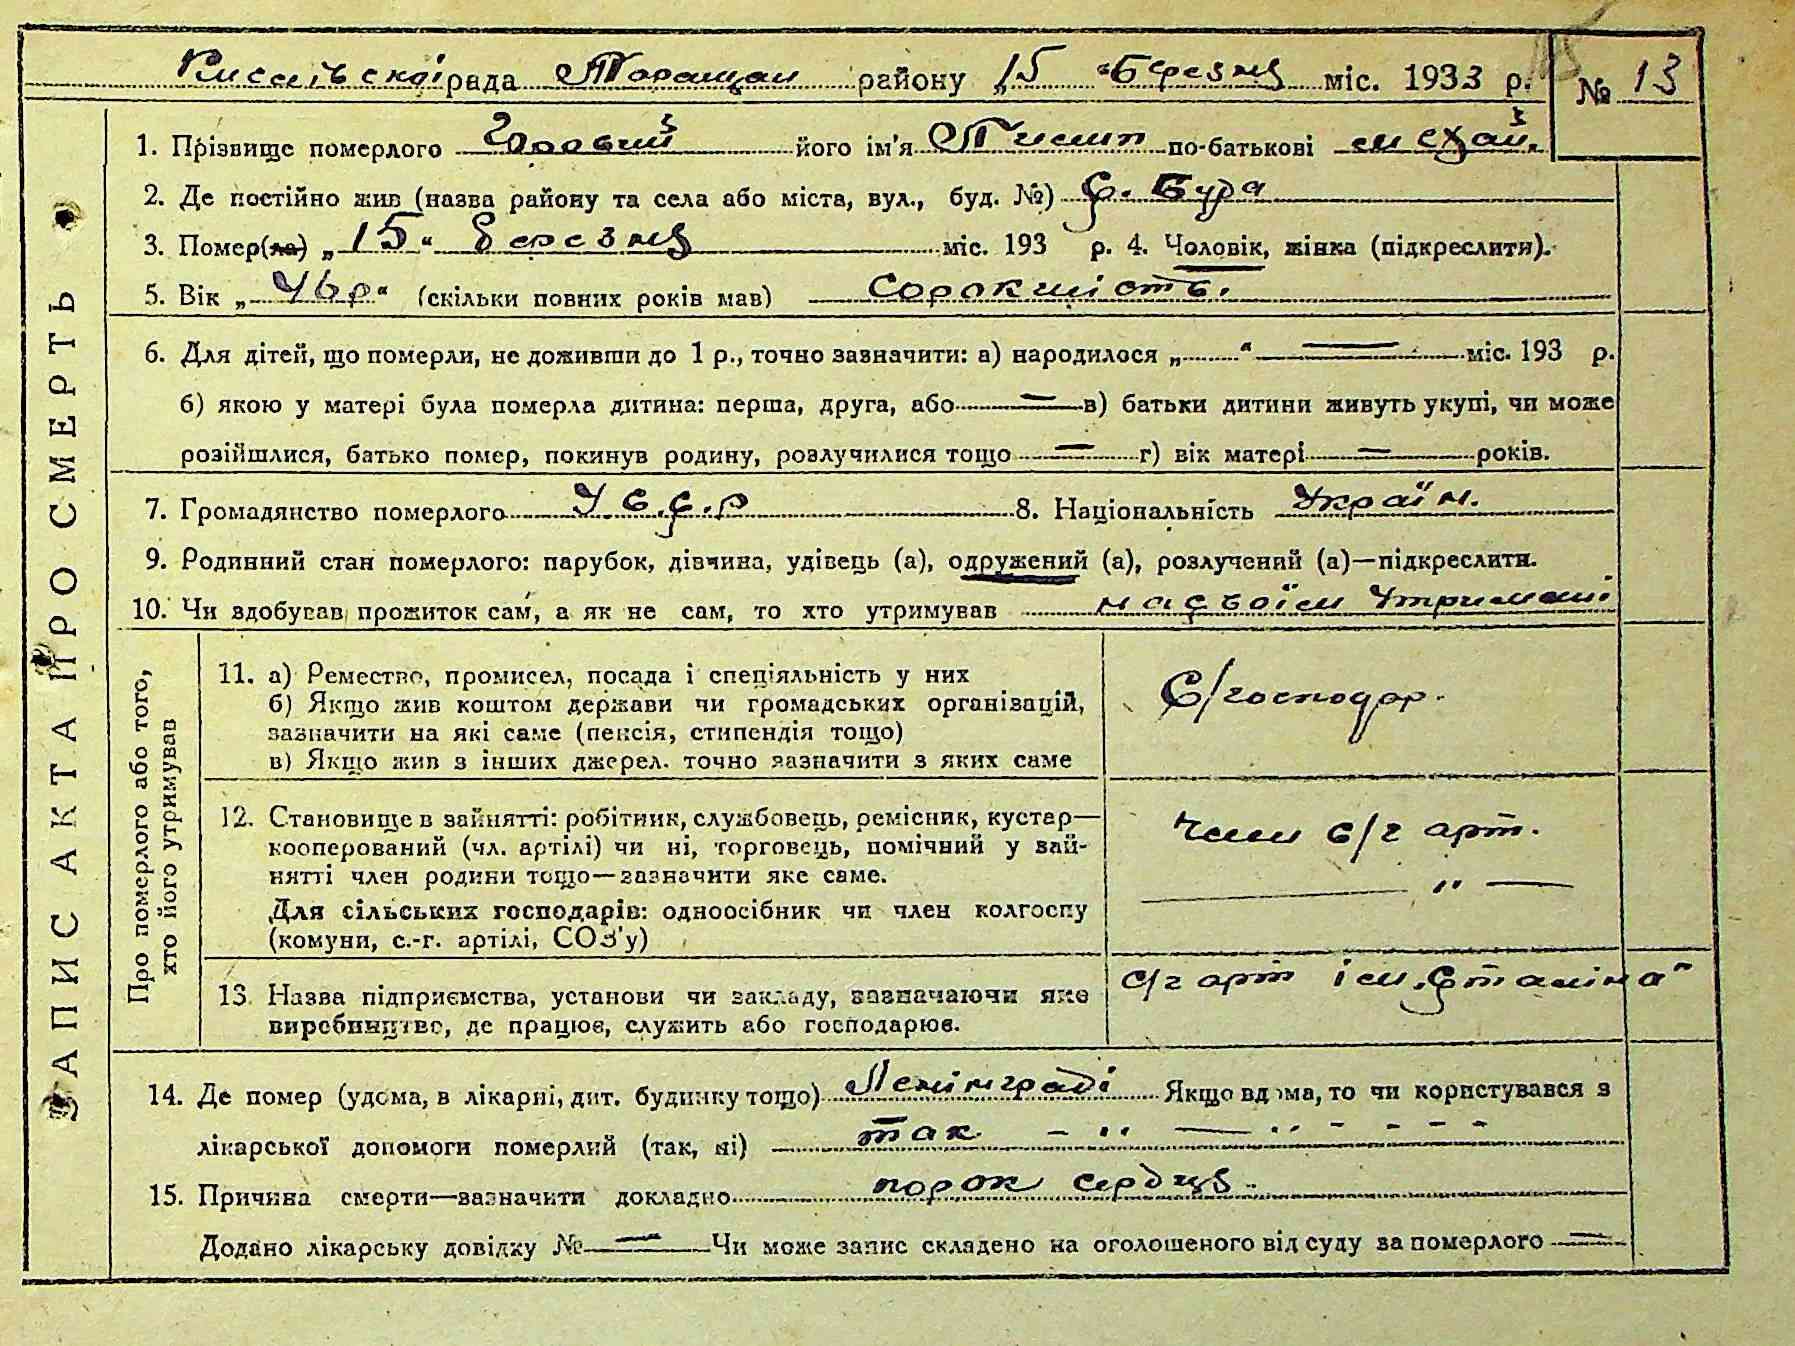 рада Таращан району „15 "Березня міс. 1933 р. № 13
1. Прізвище померлого його ім'я Тиміш по-батькові Михай.
2. Де постійно жив (назва району та села або міста, вул., буд. №) С. Бура
3. Помер(ла) „15" Березня міс. 193 р. 4. Чоловік, жінка (підкреслити).
5. Вік „46р" (скільки повних років мав) Сорокшість.
6. Для дітей, що померли, не доживши до 1 р., точно зазначити: а) народилося „ " міс. 193 р.
б) якою у матері була померла дитина: перша, друга, або — в) батьки дитини живуть укупі, чи може
розійшлися, батько помер, покинув родину, розлучилися тощо — г) вік матері — років.
7. Громадянство померлого У.С.С.Р 8. Національність Україн.
9. Родинний стан померлого: парубок, дівчина, удівець (а), одружений (а), розлучений (а)—підкреслити.
10. Чи здобував прожиток сам, а як не сам, то хто утримував на своїм утримані
ЗАПИС АКТА ПРО СМЕРТЬ
Про померлого або того,
хто його утримував
11. а) Ремество, промисел, посада і спеціяльність у них
б) Якщо жив коштом держави чи громадських організацій,
зазначити на які саме (пенсія, стипендія тощо)
в) Якщо жив з інших джерел. точно зазначити з яких саме
С/господар.
12. Становище в зайнятті: робітник, службовець, ремісник, кустар—
кооперований (чл. артілі) чи ні, торговець, помічний у зай-
нятті член родини тощо—зазначити яке саме.
Для сільських господарів: одноосібник чи член колгоспу
(комуни, с.-г. артілі, СОЗ'у)
Член с/г арт.
— " —
13. Назва підприємства, установи чи закладу, зазначаючи яке
виребництво, де працює, служить або господарює.
с/г арт ім „Сталіна"
14. Де помер (удома, в лікарні, дит. будинку тощо) Ленінграді Якщо вдома, то чи користувався з
лікарської допомоги померлий (так, ні) так — " — " - - - -
15. Причина смерти—зазначити докладно порок сердця.
Додано лікарську довідку № — Чи може запис складено на оголошеного від суду за померлого —